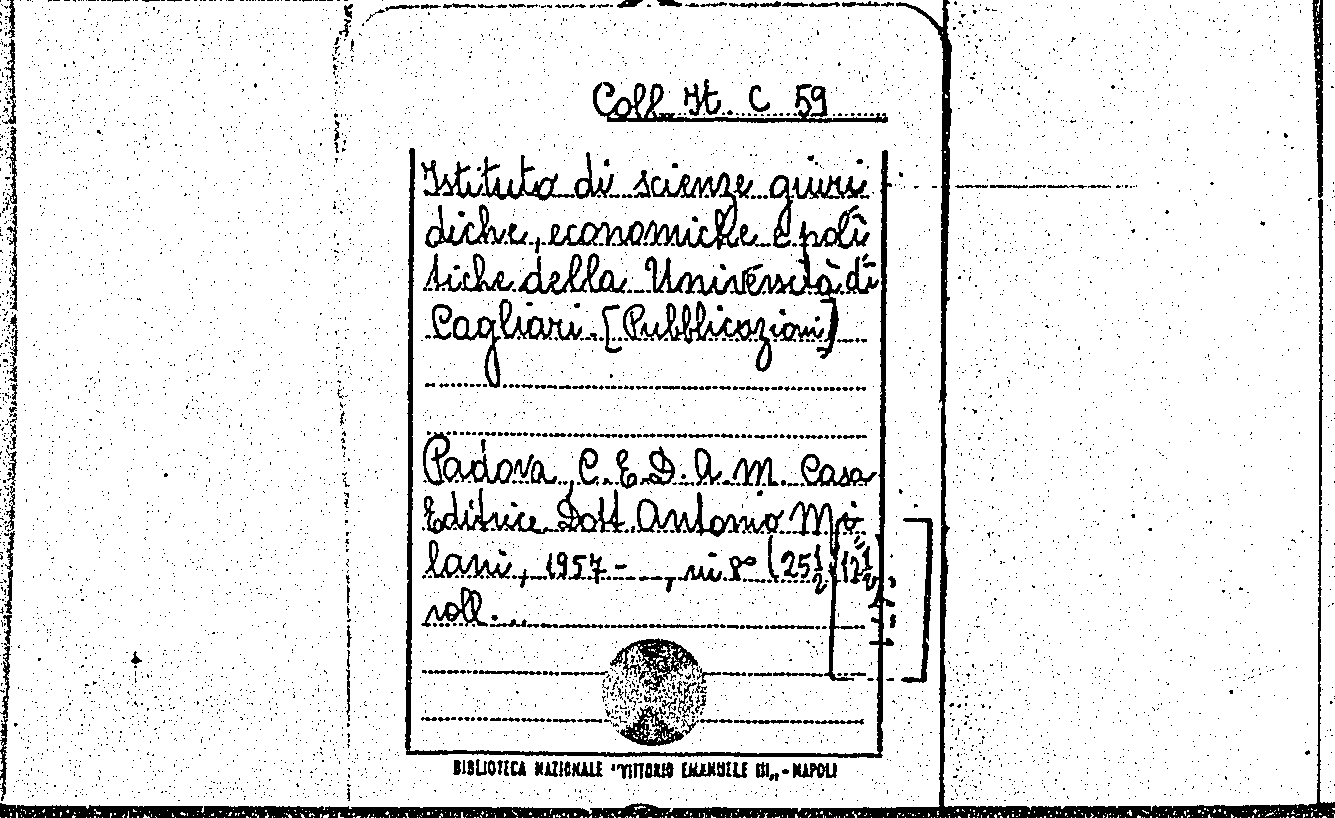 Coll. It. C 59
Istituto di scienze giuri
diche, economiche e poli
tiche della Università di
Cagliari. [Pubblicazioni]
Padova, C. E. D. A. M. Casa
Editrice Dott. Antonio Mi
lani, 1957 - , in 8° (25½
voll. ...
BIBLIOTECA NAZIONALE "VITTORIO EMANUELE III„ - NAPOLI